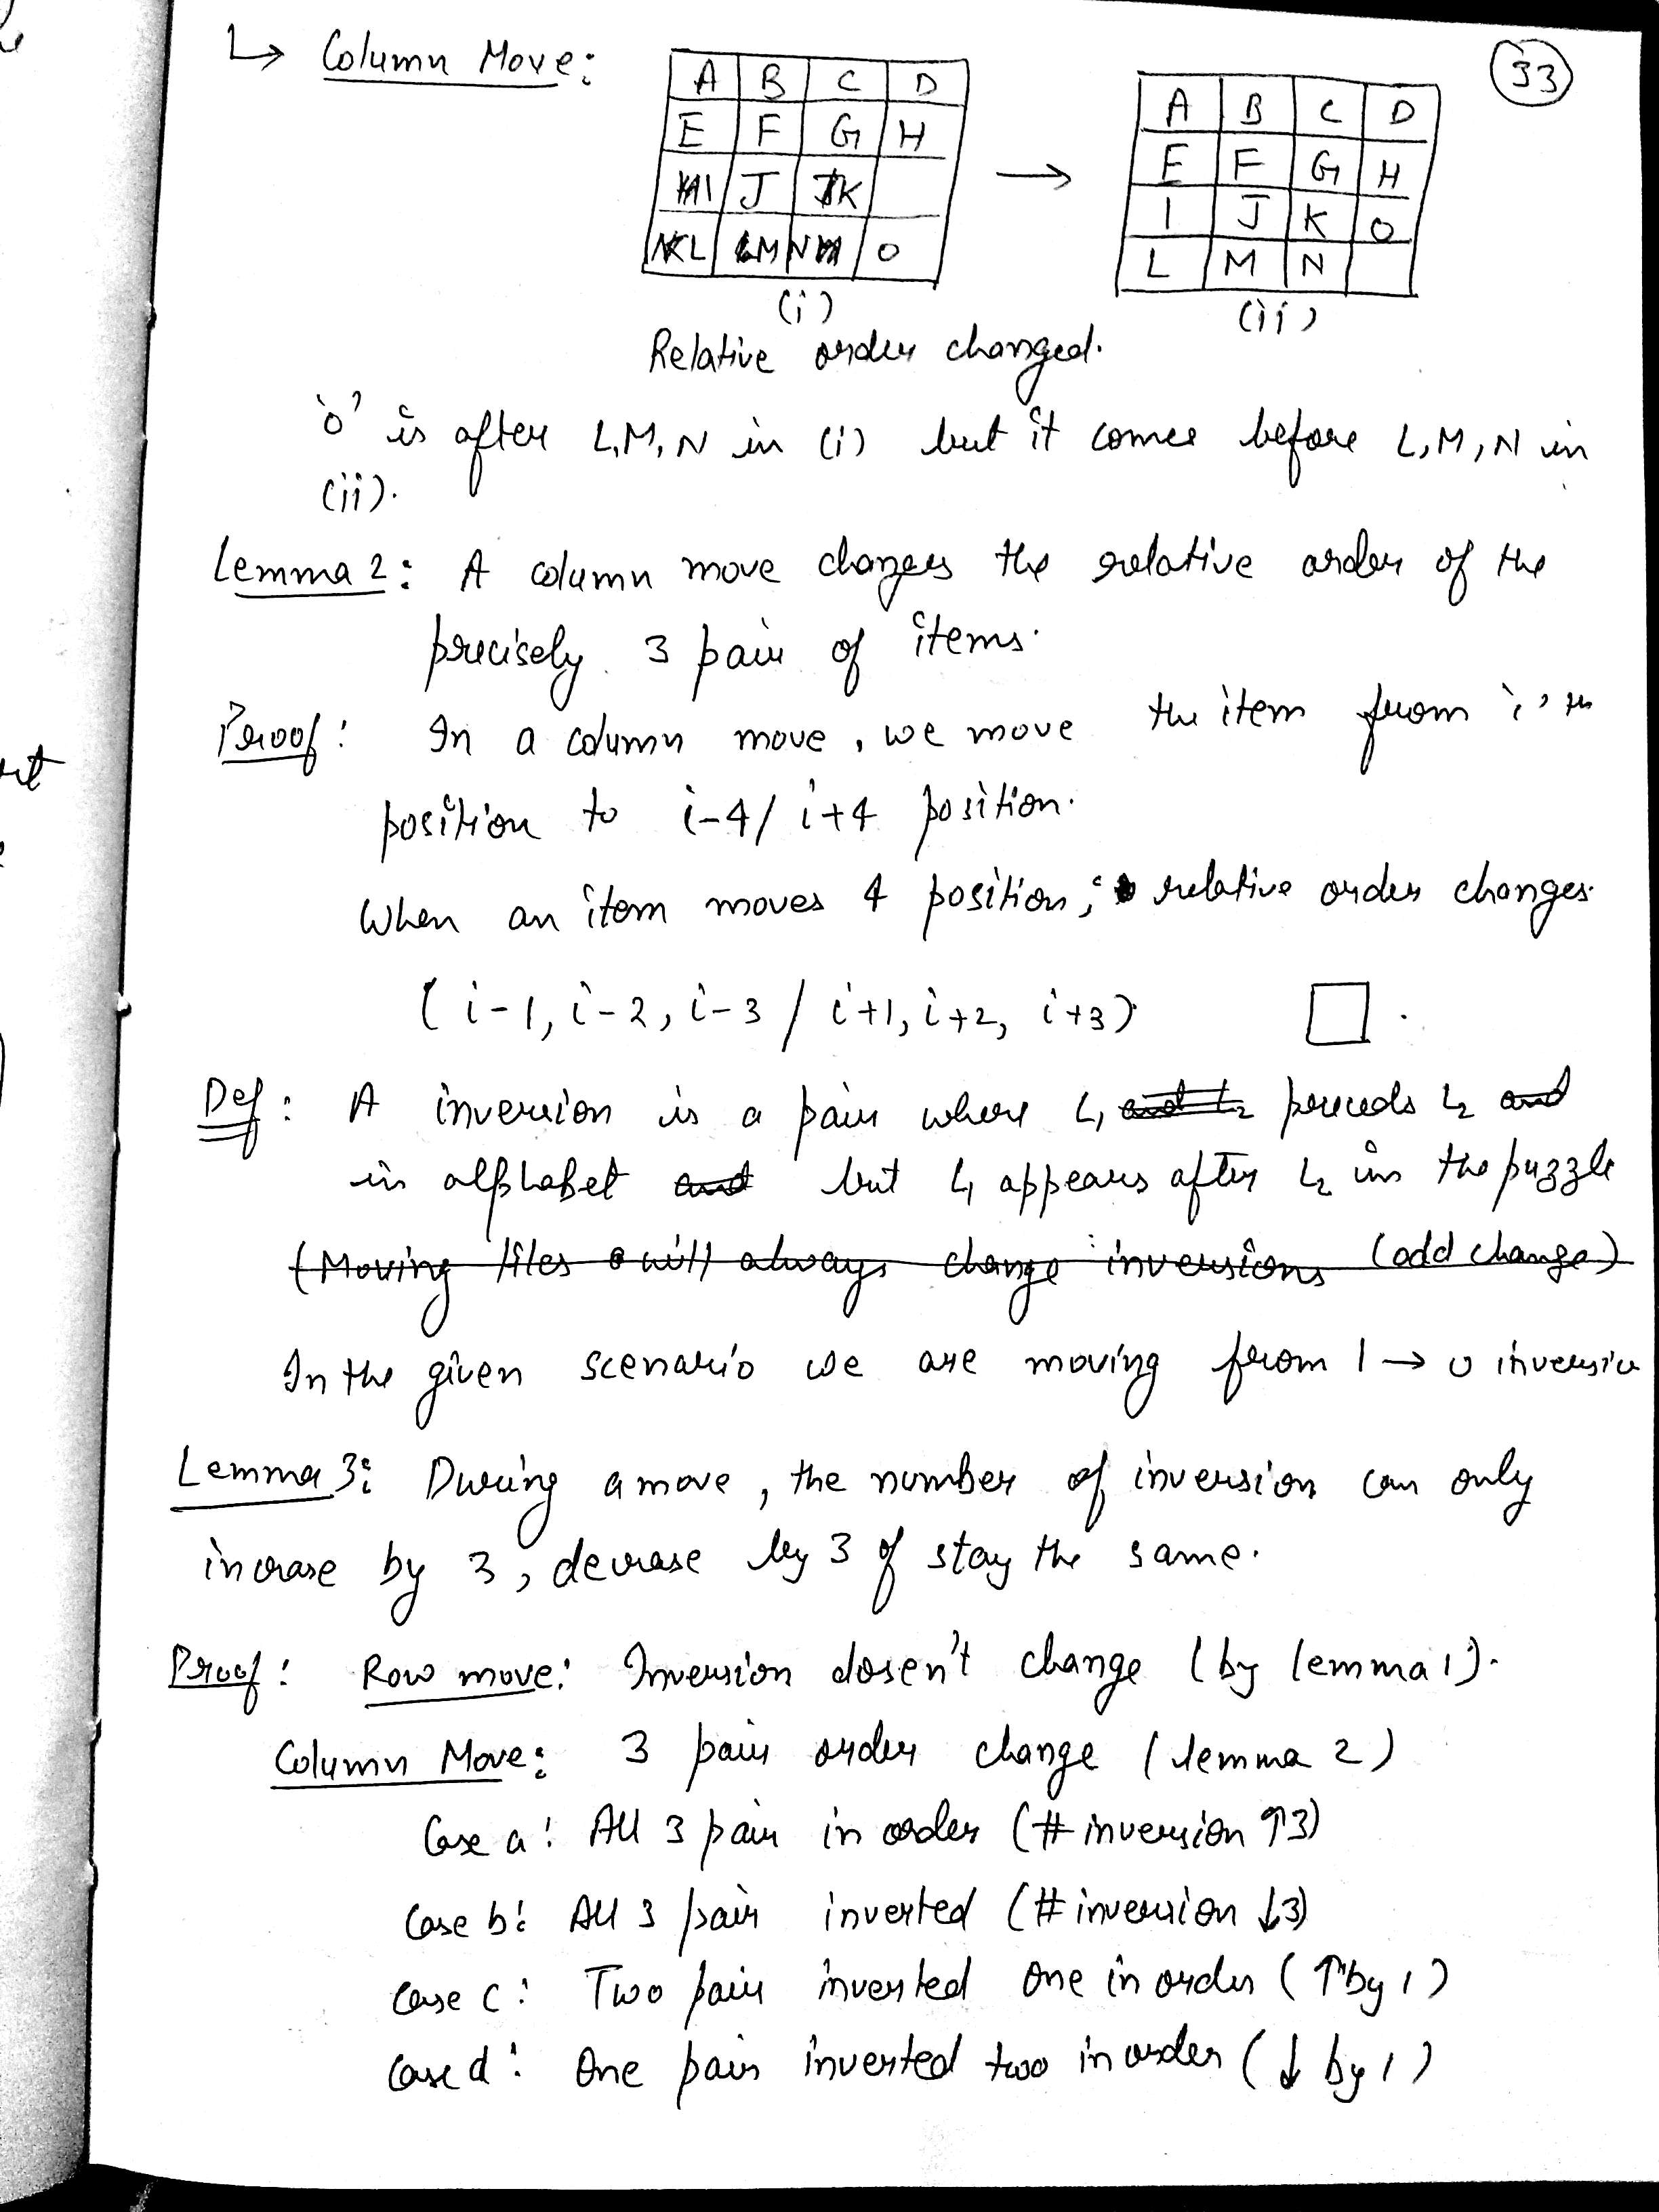 ↳ Column Move:
33
A B C D
E F G H
I J K
L M N O
(i)
→
A B C D
E F G H
I J K O
L M N
(ii)
Relative order changed.
'O' is after L,M,N in (i) but it comes before L,M,N in
(ii).
Lemma 2: A column move changes the relative order of the
precisely 3 pair of items.
Proof: In a column move, we move the item from i'th
position to i-4/ i+4 position.
When an item moves 4 position, relative order changes.
(i-1, i-2, i-3 / i+1, i+2, i+3) □.
Def: A inversion is a pair where L1 and L2 preceds L2 and
in alphabet and but L1 appears after L2 in the puzzle
(Moving tiles will always change inversions (odd change)
In the given scenario we are moving from 1 → 0 inversio
Lemma 3: During a move, the number of inversion can only
increase by 3, decrease by 3 of stay the same.
Proof: Row move: Inversion dosen't change (by lemma 1).
Column Move: 3 pair order change (lemma 2)
Case a: All 3 pair in order (# inversion ↑3)
Case b: All 3 pair inverted (# inversion ↓3)
Case c: Two pair inverted One in order (↑ by 1)
Case d: One pair inverted two in order (↓ by 1)